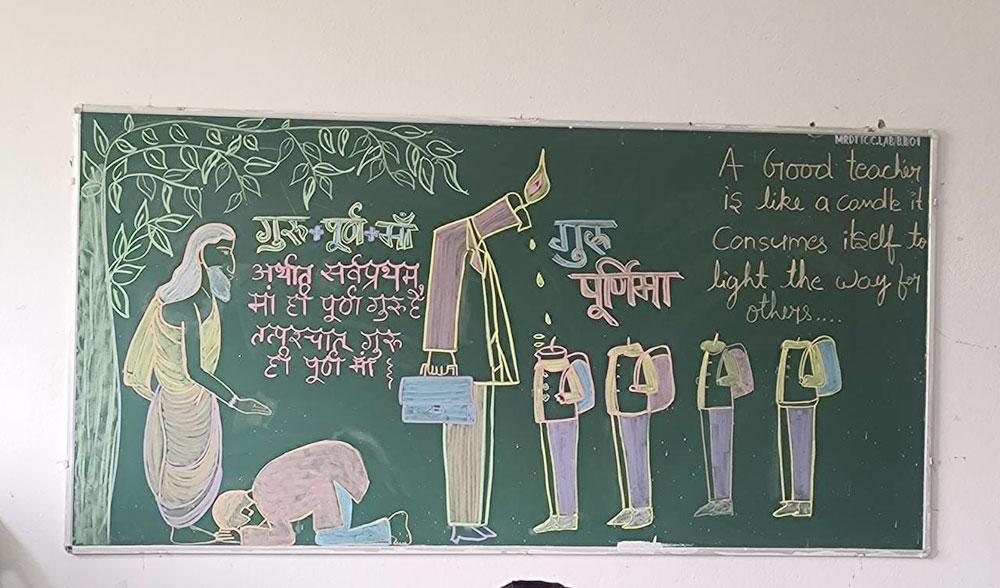 गुरू+पूर्ण+माँ
अर्थात् सर्वप्रथम,
मां ही पूर्ण गुरु है
तत्पश्चात् गुरू
ही पूर्ण माँ
गुरू
पूर्णिमा
A Good teacher
is like a candle it
Consumes itself to
light the way for
others....